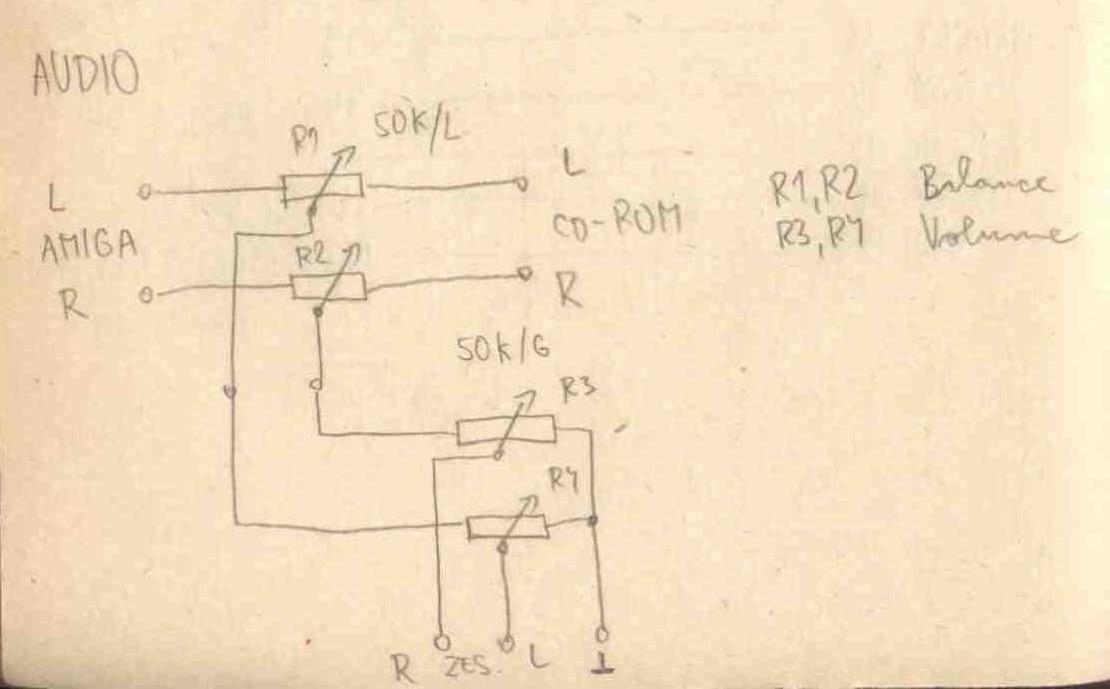 AUDIO
R1 50K/L
L L
AMIGA CD-ROM
R2
R R
R1, R2 Balance
R3, R4 Volume
50k/G
R3
R4
R ZES. L ⊥